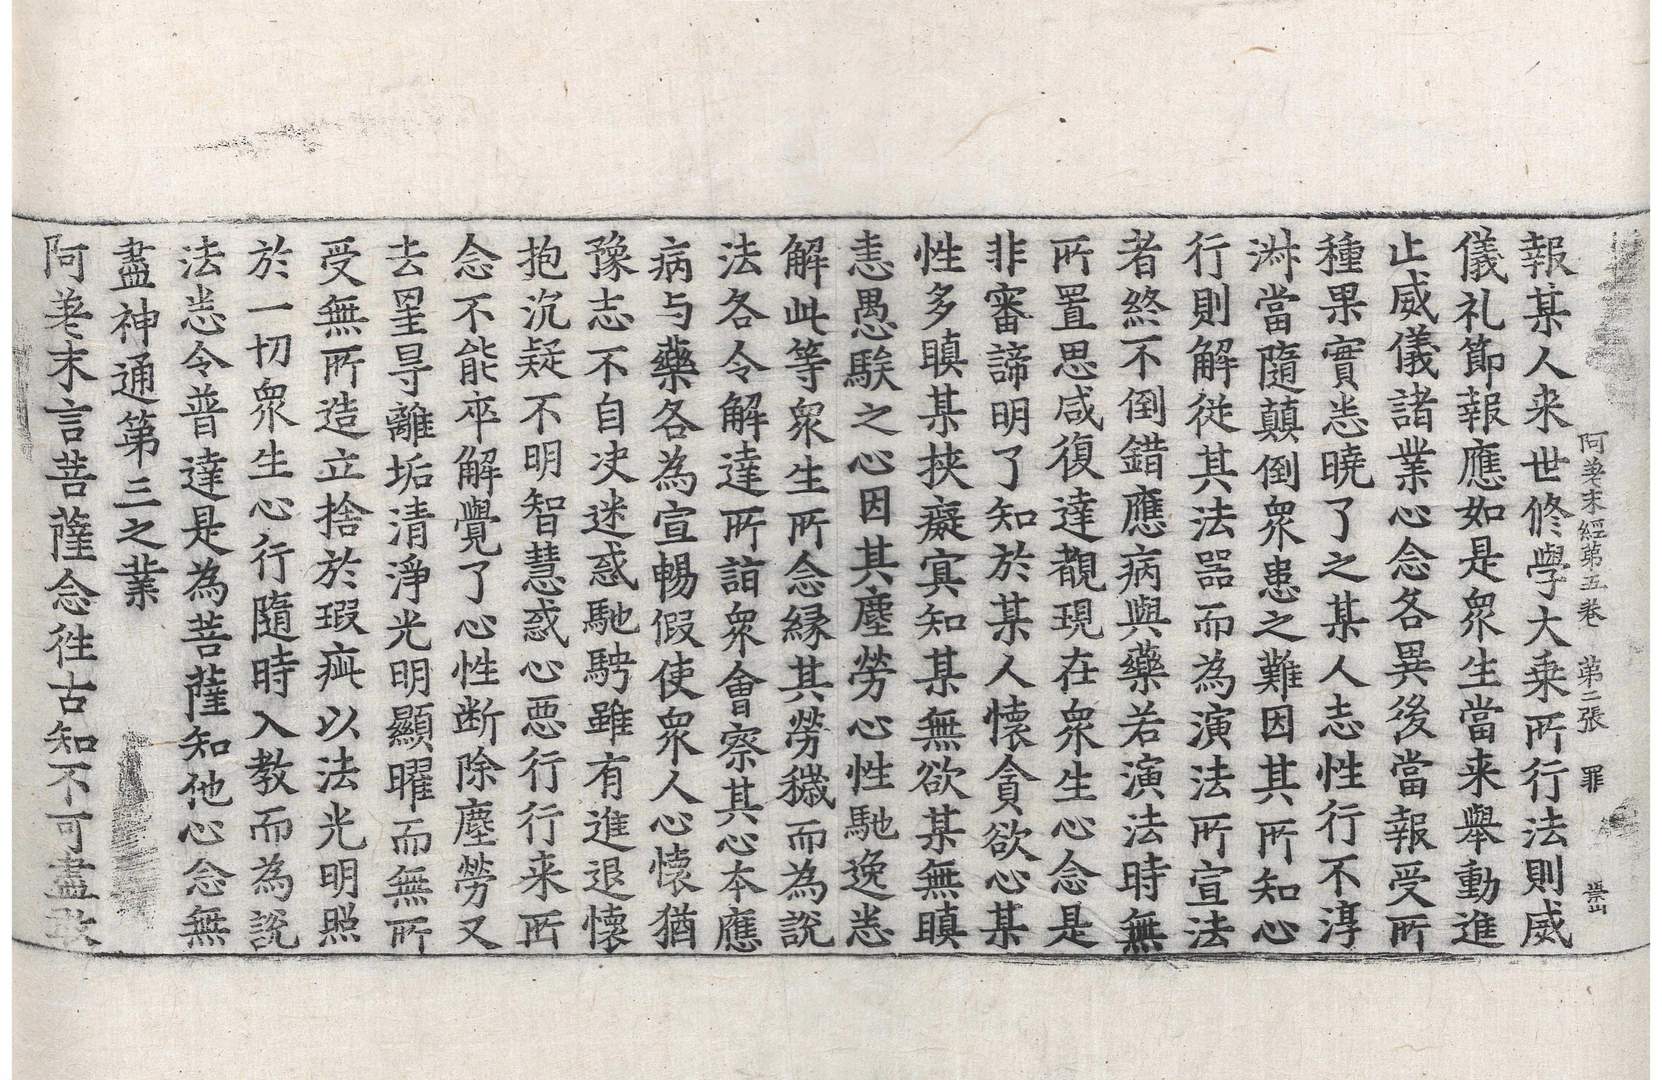 阿差末經第五卷　第二張　罪
報某人来世修學大乗所行法則威
儀礼節報應如是衆生當来舉動進
止威儀諸業心念各異後當報受所
種果實恙曉了之某人志性行不淳
淋當隨顛倒衆患之難因其所知心
行則解従其法器而為演法所宣法
者終不倒錯應病與藥若演法時無
所置思咸復達覩現在衆生心念是
非審諦明了知於某人懷貪欲心某
性多瞋某挾癡冥知某無欲某無瞋
恚愚騃之心因其塵勞心性馳逸恙
解此等衆生所念縁其勞穢而為說
法各令解達所詣衆會察其心本應
病与藥各為宣暢假使衆人心懷猶
豫志不自決迷惑馳騁雖有進退懷
抱沉疑不明智慧惑心悪行行来所
念不能卒解覺了心性断除塵勞又
去罣㝵離垢清淨光明顯曜而無所
受無所造立捨於瑕疵以法光明照
於一切衆生心行隨時入教而為說
法恙令普達是為菩薩知他心念無
盡神通第三之業
阿差末言菩薩念徃古知不可盡故